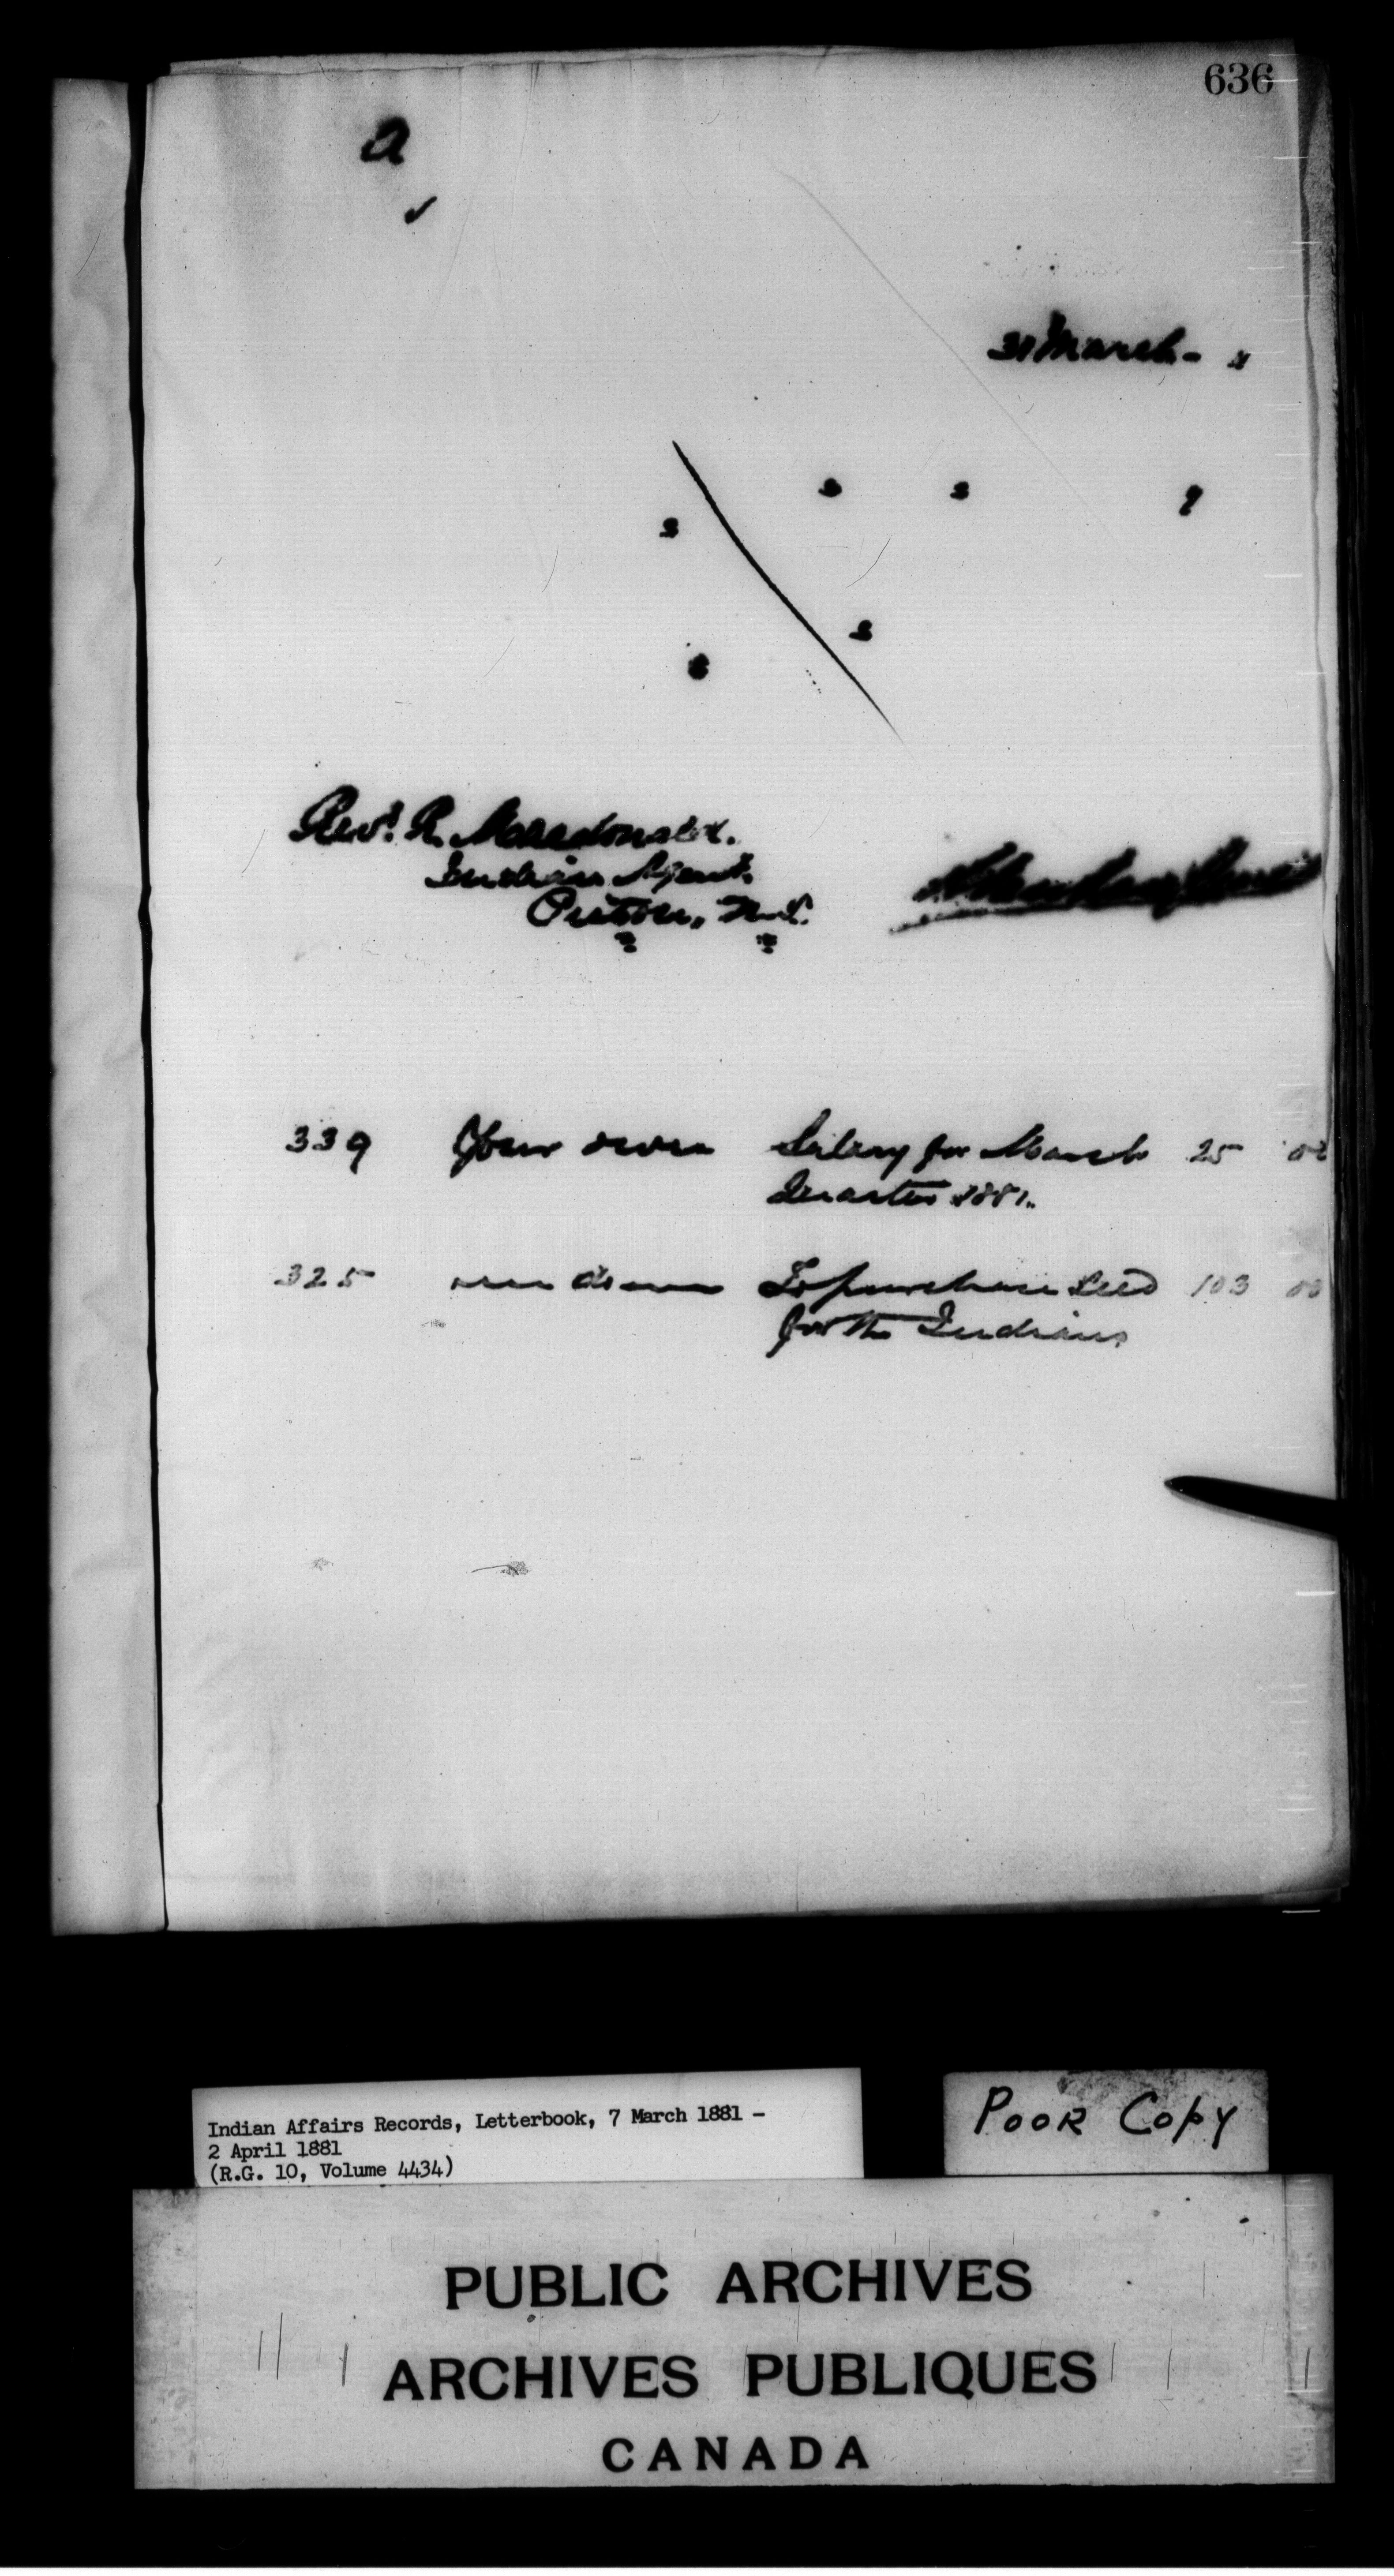 636
a
31 March - 1
2 2 2
2
2
2
Revd. R. Macdonald.
Indian Agent.
Pictou, N.S.
339 Your own Salary for March 25 00
Quarter 1881.
325 To purchase Seed 103 00
for the Indians
Indian Affairs Records, Letterbook, 7 March 1881 -
2 April 1881
(R.G. 10, Volume 4434)
POOR COPY
PUBLIC ARCHIVES
ARCHIVES PUBLIQUES
CANADA